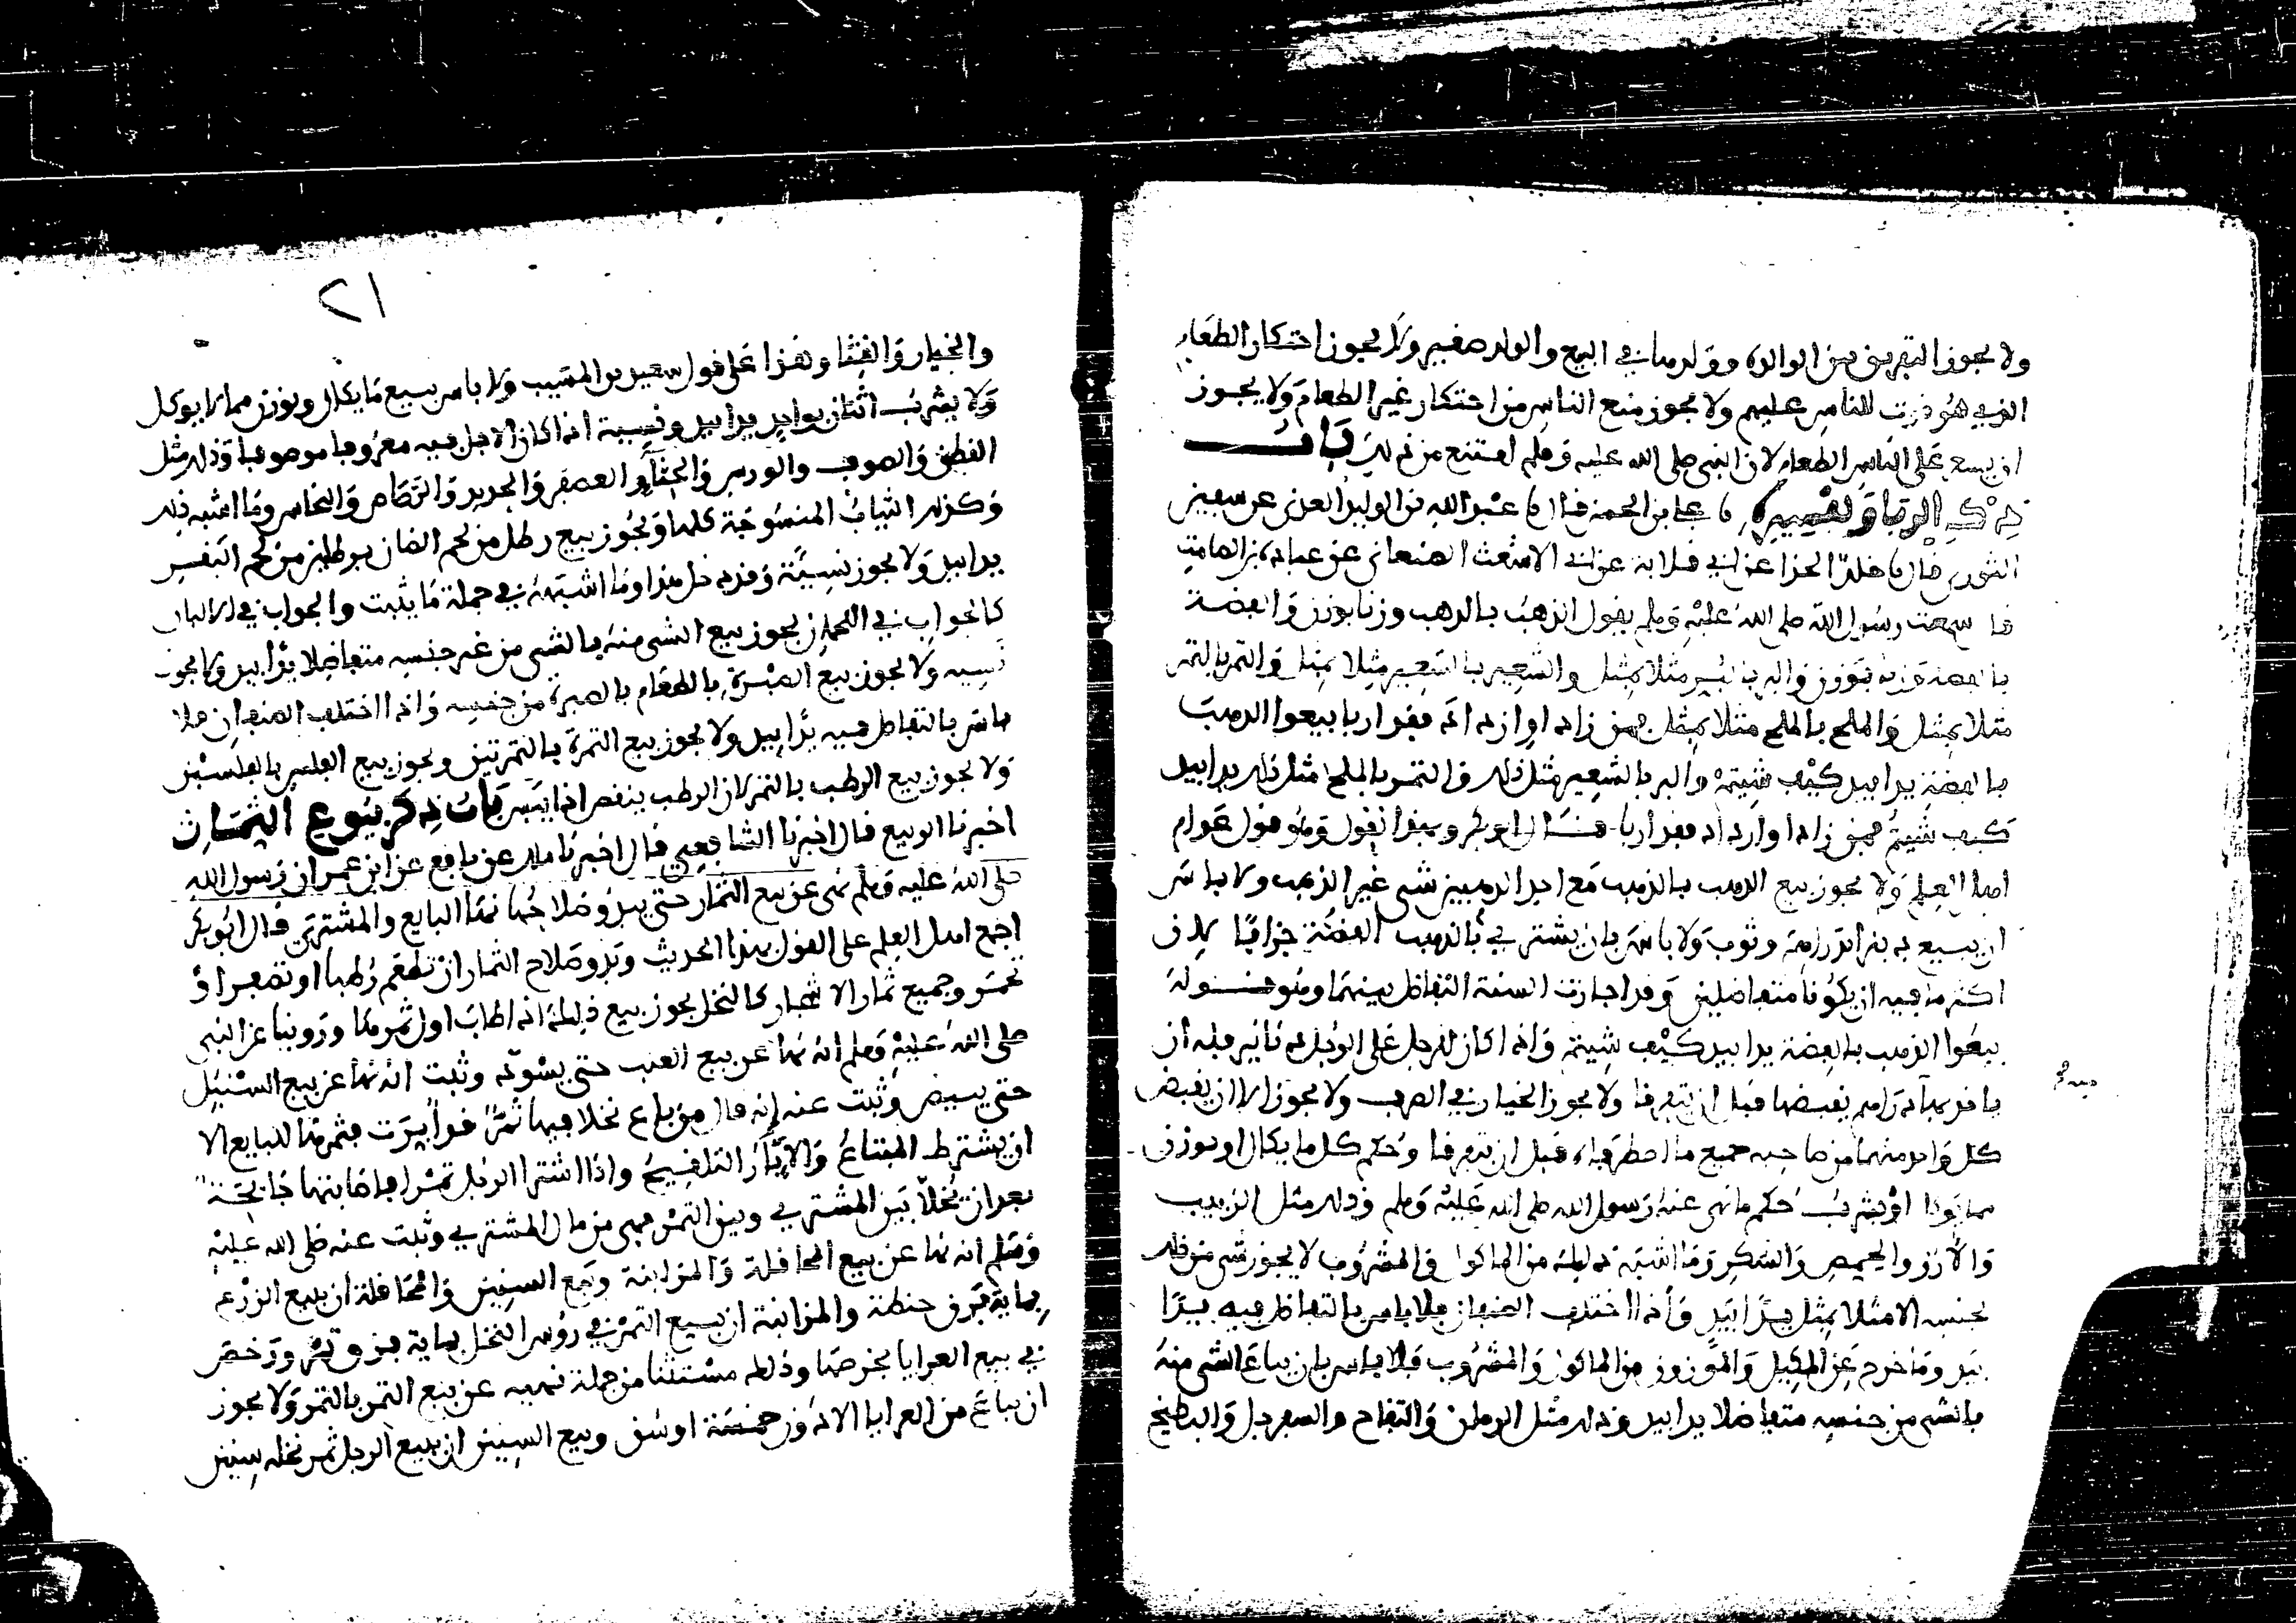 ولا يجوز التفريق بين الوالدة وولدها في البيع والولد صغير ولا يجوز احتكار الطعام
الذي هو قوت للناس عليهم ولا يجوز منع الناس من احتكار غير الطعام ولا يجوز
ان يسعر على الناس الطعام لان النبي صلى الله عليه وسلم امتنع من ذلك باب
ذكر الربا وتفسيره نا علي بن الحسن قال نا عبد الله بن الوليد العدني عن سفين
الثوري قال نا خلد الحذا عن ابي قلابة عن ابي الاشعث الصنعاني عن عبادة بن الصامت
قال سمعت رسول الله صلى الله عليه وسلم يقول الذهب بالذهب وزنا بوزن والفضة
بالفضة وزنا بوزن والبر بالبر مثلا بمثل والشعير بالشعير مثلا بمثل والتمر بالتمر
مثلا بمثل والملح بالملح مثلا بمثل فمن زاد او ازداد فقد اربا بيعوا الذهب
بالفضة يدا بيد كيف شيتم والبر بالشعير مثل ذلك والتمر بالملح مثل ذلك يدا بيد
كيف شيتم فمن زاد او ازداد فقد اربا قال ابو بكر وبهذا نقول وهو قول عوام
اهل العلم ولا يجوز بيع الذهب بالذهب مع احد الذهبين شي غير الذهب ولا باس
ان يبيع دينرا بدراهم وثوب ولا باس بان يشتري بالذهب الفضة جزافا لان
اكثر ما فيه ان يكونا متفاضلين وقد اجازت السنة التفاضل بينهما وهو قوله
بيعوا الذهب بالفضة يدا بيد كيف شيتم واذا كان للرجل على الرجل دنانير فله ان
ياخذ بها دراهم يقبضها قبل ان يتفرقا ولا يجوز الخيار في الصرف ولا يجوز الا ان يقبض
كل واحد منهما من صاحبه جميع ما اصطرفا قبل ان يتفرقا وحكم كل ما يكال او يوزن
مما يوكل او يشرب حكم ما نهى عنه رسول الله صلى الله عليه وسلم وذلك مثل الزبيب
والارز والحمص والسكر وما اشبه ذلك من الماكول والمشروب لا يجوز شي من ذلك
بجنسه الا مثلا بمثل يدا بيد واذا اختلف الصنفان فلا باس بالتفاضل فيه يدا
بيد وما خرج عن المكيل والموزون من الماكول والمشروب فلا باس بان يباع الشي منه
بالشي من جنسه متفاضلا يدا بيد وذلك مثل الرمان والتفاح والسفرجل والبطيخ
٢١
والخيار والقثا وهذا على قول سعيد بن المسيب ولا باس ببيع ما يكال ويوزن مما لا يوكل
ولا يشرب اثنان بواحد يدا بيد ونسية اذا كان الاجل فيه معروفا موصوفا وذلك مثل
القطن والصوف والورس والحنا والعصفر والحديد والرصاص والنحاس وما اشبه ذلك
وكذلك الثياب المنسوجة كلها ويجوز بيع رطل من لحم الضان برطلين من لحم البقر
يدا بيد ولا يجوز نسيئة وقد دخل هذا وما اشبهه في جملة ما يثبت والجواب في الالبان
كالجواب في اللحمان يجوز بيع الشي منه بالشي من غير جنسه متفاضلا يدا بيد ولا يجوز
نسيه ولا يجوز بيع الصبرة بالطعام بالصبرة من جنسه واذا اختلف الصنفان فلا
باس بالتفاضل فيه يدا بيد ولا يجوز بيع التمرة بالتمرتين ويجوز بيع الفلس بالفلسين
ولا يجوز بيع الرطب بالتمر لان الرطب ينقص اذا يبس باب ذكر بيوع الثمار
اخبرنا الربيع قال اخبرنا الشافعي قال اخبرنا ملك عن نافع عن ابن عمر ان رسول الله
صلى الله عليه وسلم نهى عن بيع الثمار حتى يبدو صلاحها نها البايع والمشتري قال ابو بكر
اجمع اهل العلم على القول بهذا الحديث وبدو صلاح الثمار ان تطعم رطبا او تصفر او
تحمر وجميع ثمار الاشجار كالنخل يجوز بيع ذلك اذا طاب اول ثمرها وروينا عن النبي
صلى الله عليه وسلم انه نها عن بيع العنب حتى يسود وثبت انه نها عن بيع السنبل
حتى يبيض وثبت عنه انه قال من باع نخلا فيها ثمرا قد ابرت فثمرها للبايع الا
ان يشترط المبتاع والابار التلقيح واذا اشترا الرجل ثمرا فاصابتها جايحة
بعد ان يخلا بين المشتري وبين الثمر فهي من مال المشتري وثبت عنه صلى الله عليه
وسلم انه نها عن بيع المحاقلة والمزابنة وبيع السنين والمحاقلة ان يبيع الزرع
بماية فرق حنطة والمزابنة ان يبيع التمر في روس النخل بماية فرق تمر ورخص
في بيع العرايا بخرصها وذلك مستثنا من جملة نهيه عن بيع الثمر بالتمر ولا يجوز
ان يباع من العرايا الا دون خمسة اوسق وبيع السنين ان يبيع الرجل ثمر نخله سنين